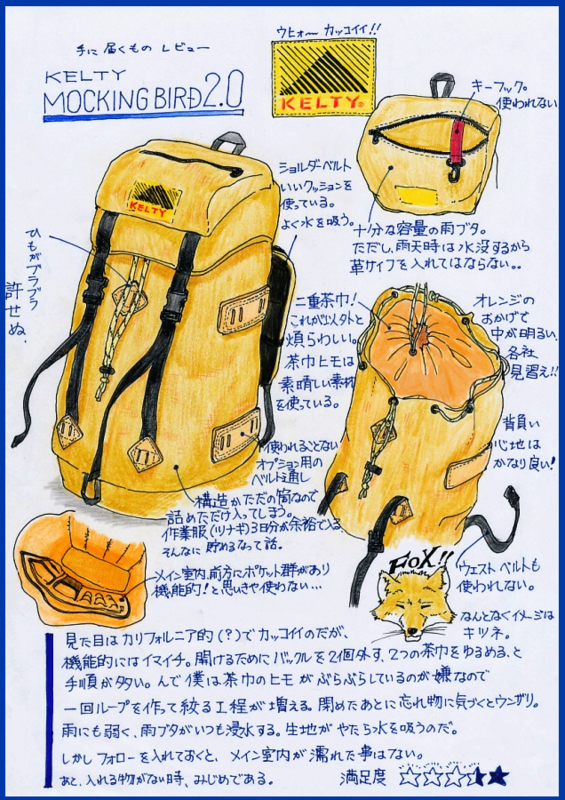 手に届くもの レビュー
KELTY
MOCKINGBIRD 2.0
ウヒョー カッコイイ!!
KELTY
キーフック。
使われない
ショルダーベルト
いいクッションを
使っている。
よく水を吸う。
十分な容量の雨ブタ。
ただし、雨天時は水没するから
革サイフを入れてはならない。。
KELTY
ひもがブラブラ
許せぬ、
二重茶巾!
これが以外と
煩らわしい。
茶巾ヒモは
素晴しい素材
を使っている。
オレンジの
おかげで
中が明るい、
各社
見習え!!
背負い
心地は
かなり良い!
使われることない
オプション用の
ベルト通し
構造がただの筒なので
詰めただけ入ってしまう。
作業服(ツナギ)3日分が余裕で入る
そんなに貯めるなって話。
メイン室内、前方にポケット群があり
機能的!と思いきや使わない…
FOX!!
ウェストベルトも
使われない。
なんとなくイメージは
キツネ。
見た目はカリフォルニア的(?)でカッコイイのだが、
機能的にはイマイチ。開けるためにバックルを2個外す、2つの茶巾をゆるめる、と
手順が多い。んで僕は茶巾のヒモがぶらぶらしているのが嫌なので
一回ループを作って絞る工程が増える。閉めたあとに忘れ物に気づくとウンザリ。
雨にも弱く、雨ブタがいつも浸水する。生地がやたらっ水を吸うのだ。
しかしフォローを入れておくと、メイン室内が濡れた事はない。
あと、入れる物がない時、みじめである。
満足度 ☆☆☆★★